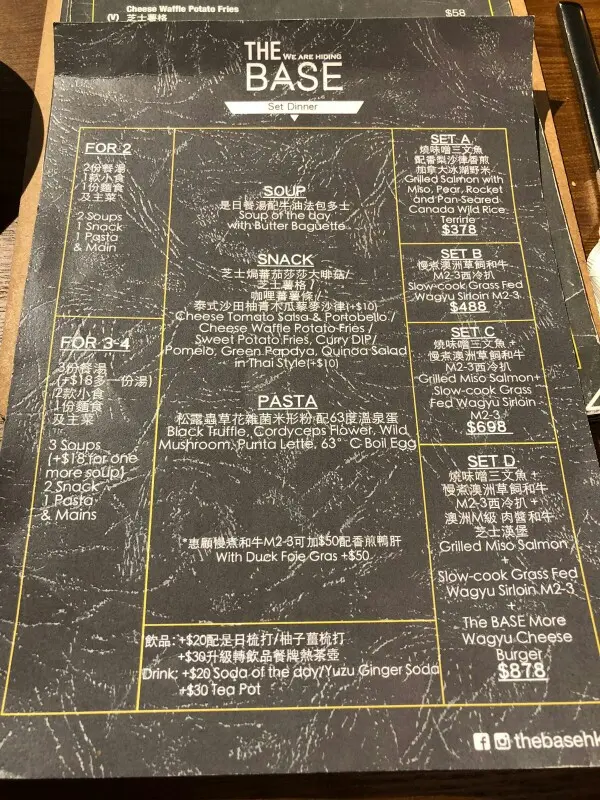 Cheese Waffle Potato Fries
(V) 芝士薯格
$58
THE
WE ARE HIDING
BASE
Set Dinner
FOR 2
2份餐湯
1款小食
1份麵食
及主菜
2 Soups
1 Snack
1 Pasta
& Main
FOR 3-4
3份餐湯
(+$18多一份湯)
2款小食
1份麵食
及主菜
3 Soups
(+$18 for one
more soup)
2 Snack
1 Pasta
& Mains
SOUP
是日餐湯配牛油法包多士
Soup of the day
with Butter Baguette
SNACK
芝士焗蕃茄莎莎大啡菇/
芝士薯格 /
咖哩蕃薯條 /
泰式沙田柚青木瓜藜麥沙律(+$10)
Cheese Tomato Salsa & Portobello /
Cheese Waffle Potato Fries /
Sweet Potato Fries, Curry DIP/
Pomelo, Green Papaya, Quinoa Salad
in Thai Style(+$10)
PASTA
松露蟲草花雜菌米形粉·配63度溫泉蛋
Black Truffle, Cordyceps Flower, Wild
Mushroom, Punta Lette, 63°C Boil Egg
*惠顧慢煮和牛M2-3可加$50配香煎鴨肝
With Duck Foie Gras +$50
飲品: +$20配是日梳打/柚子薑梳打
+$30升級轉飲品餐牌熱茶壺
Drink: +$20 Soda of the day/Yuzu Ginger Soda
+$30 Tea Pot
SET A
燒味噌三文魚
配香梨沙律香煎
加拿大冰湖野米
Grilled Salmon with
Miso, Pear, Rocket
and Pan-Seared
Canada Wild Rice
Terrine
$378
SET B
慢煮澳洲草飼和牛
M2-3西冷扒
Slow-cook Grass Fed
Wagyu Sirloin M2-3
$488
SET C
燒味噌三文魚 +
慢煮澳洲草飼和牛
M2-3西冷扒
Grilled Miso Salmon+
Slow-cook Grass
Fed Wagyu Sirloin
M2-3
$698
SET D
燒味噌三文魚 +
慢煮澳洲草飼和牛
M2-3西冷扒 +
澳洲M級 肉醬和牛
芝士漢堡
Grilled Miso Salmon
+
Slow-cook Grass Fed
Wagyu Sirloin M2-3
+
The BASE More
Wagyu Cheese
Burger
$878
thebasehk